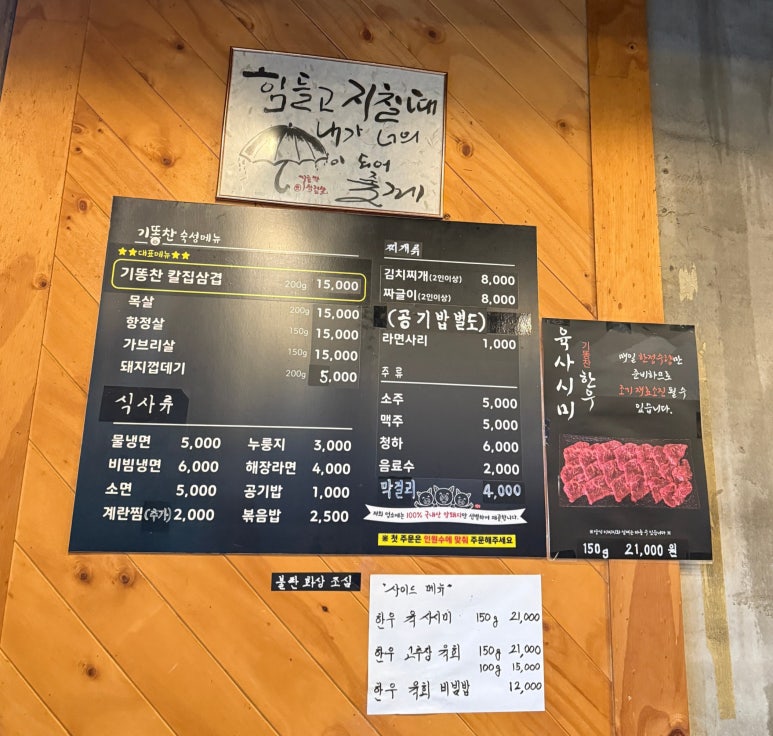 힘들고 지칠때
내가 너의
이 되어
줄게
기똥찬 숙성메뉴
★★대표메뉴★★
기똥찬 칼집삼겹 200g 15,000
목살 200g 15,000
항정살 150g 15,000
가브리살 150g 15,000
돼지껍데기 200g 5,000
식사류
물냉면 5,000
비빔냉면 6,000
소면 5,000
계란찜(추가) 2,000
누룽지 3,000
해장라면 4,000
공기밥 1,000
볶음밥 2,500
찌개류
김치찌개(2인이상) 8,000
짜글이(2인이상) 8,000
(공기밥별도)
라면사리 1,000
주류
소주 5,000
맥주 5,000
청하 6,000
음료수 2,000
막걸리 4,000
저희 업소에는 100% 국내산 암퇘지만 선별하여 제공합니다.
※ 첫 주문은 인원수에 맞춰 주문해주세요
기똥찬 한우
육사시미
매일 한정수량만
준비하므로
조기재료소진 될 수
있습니다.
150g 21,000 원
불판 화상 조심
"사이드 메뉴"
한우 육사시미 150g 21,000
한우 고추장 육회 150g 21,000
100g 15,000
한우 육회 비빔밥 12,000